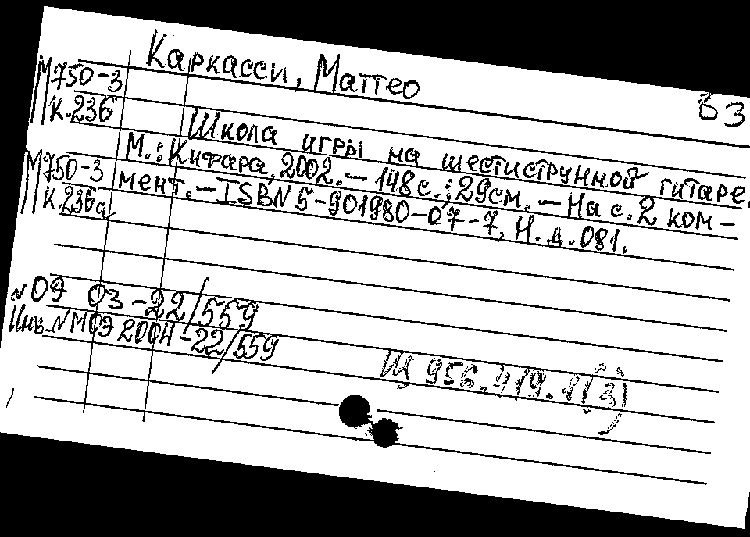 Каркасси, Маттео
В3
М750-3
К.236
Школа игры на шестиструнной гитаре.
М.: Кифара, 2002. – 148 с.; 29 см. – На с. 2 ком-
М750-3
К.236а
мент. – ISBN 5-901980-07-7, Н.д. 081.
N ОЭ 03-22/559
Инв. N МОЭ 2004-22/559
956.419.